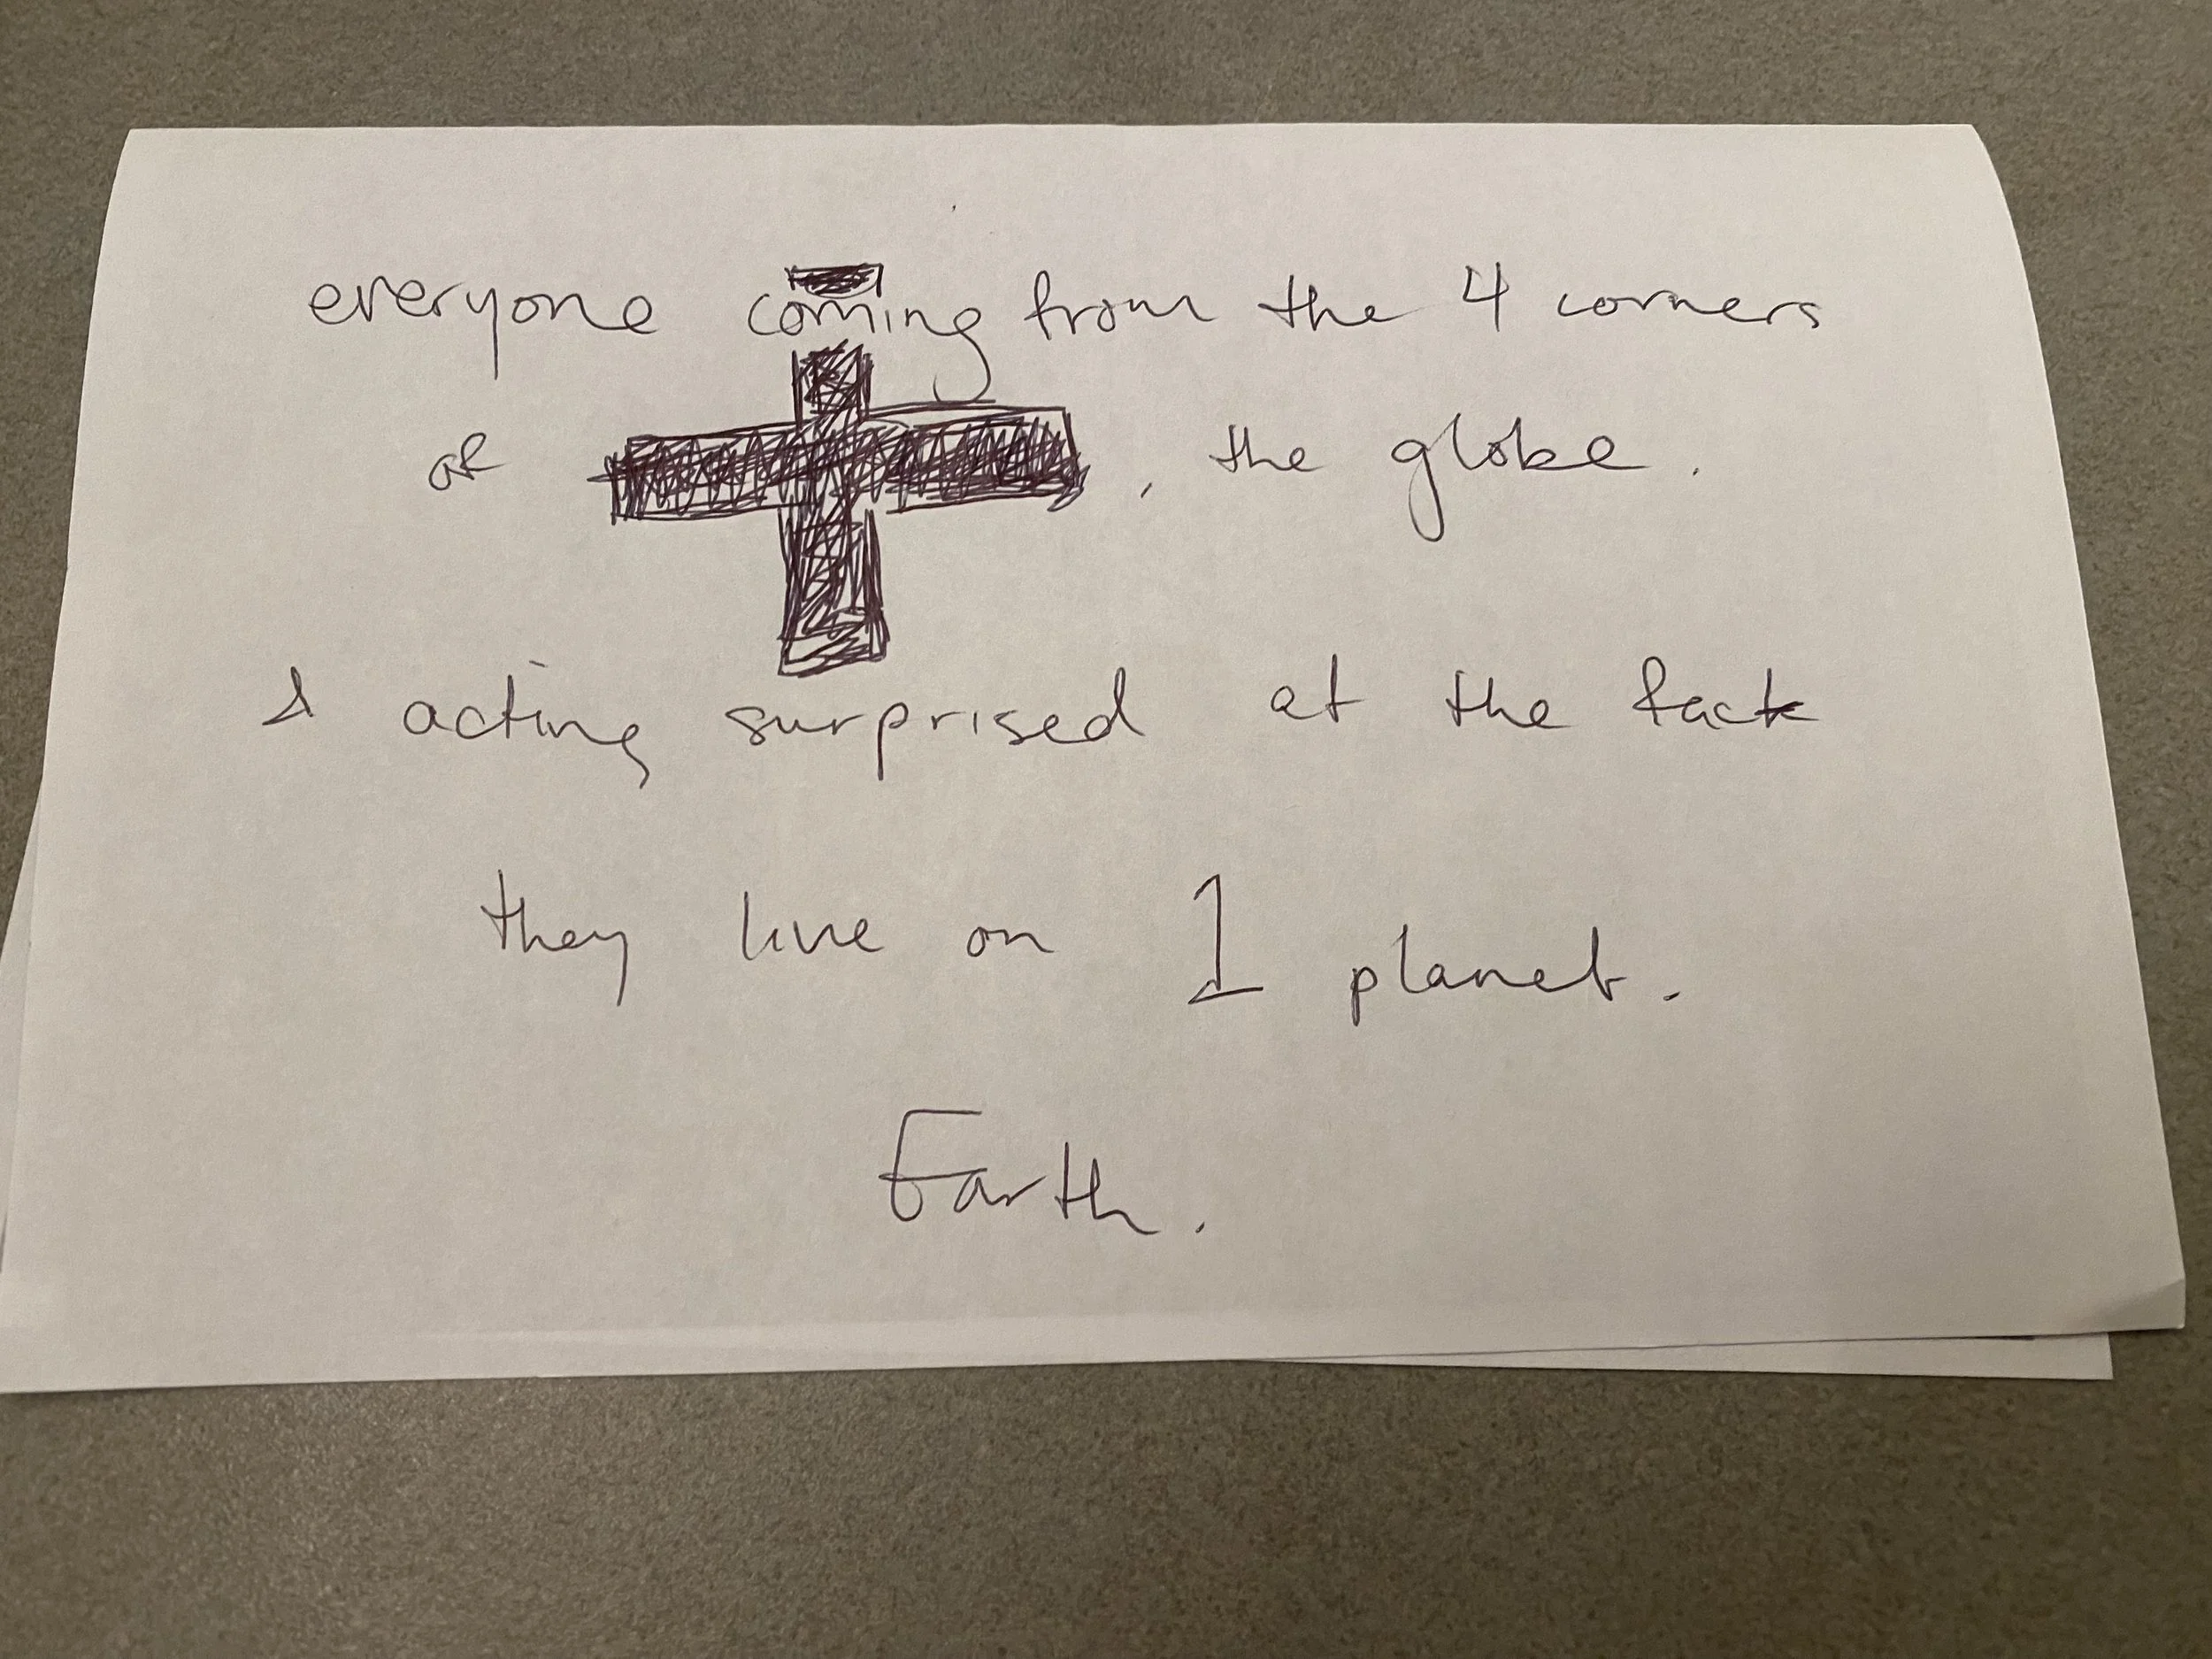 everyone coming from the 4 corners
of , the globe.
& acting surprised at the fact
they live on 1 planet.
Earth.